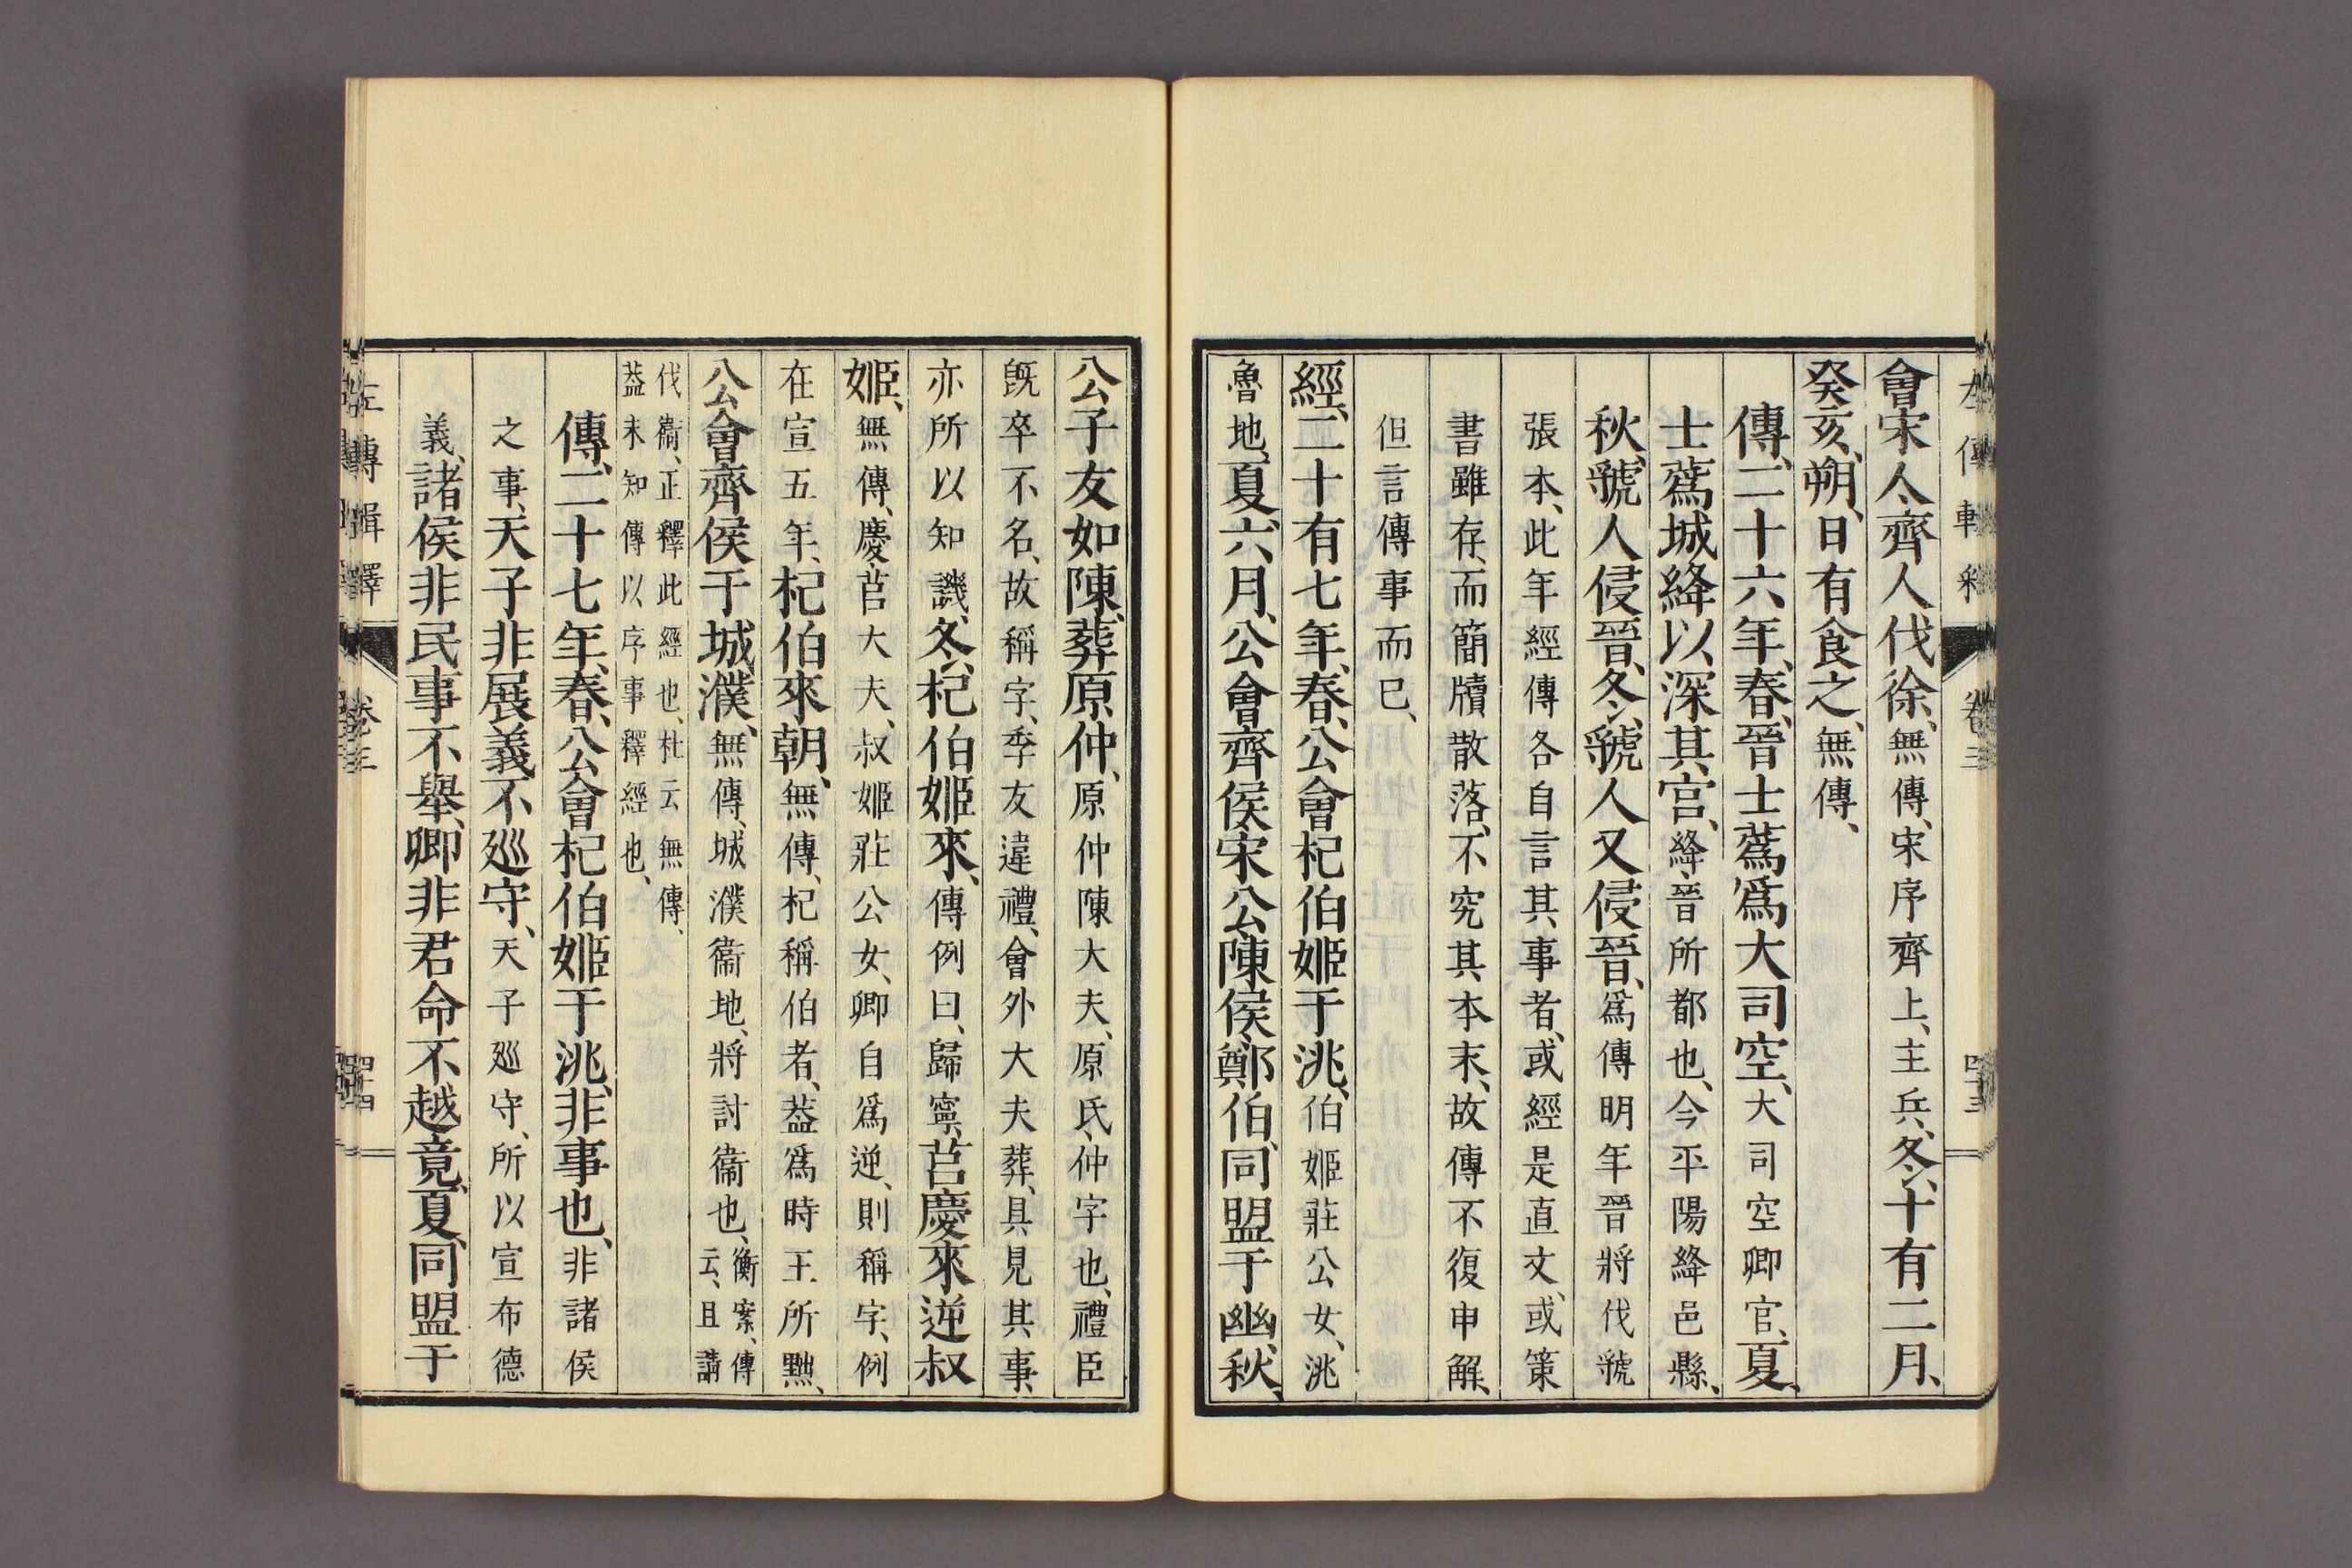 會宋人、齊人伐徐、無傳、宋序齊上、主兵、冬、十有二月、
癸亥、朔、日有食之、無傳、
傳、二十六年、春、晉士蔿爲大司空、大司空卿官、夏、
士蔿城絳以深其宮、絳、晉所都也、今平陽絳邑縣、
秋、虢人侵晉、冬、虢人又侵晉、爲傳明年晉將伐虢
張本、此年經傳各自言其事者、或經是直文、或策
書雖存、而簡牘散落、不究其本末、故傳不復申解、
但言傳事而已、
經、二十有七年、春、公會杞伯姬于洮、伯姬莊公女、洮
魯地、夏、六月、公會齊侯、宋公、陳侯、鄭伯、同盟于幽、秋、
公子友如陳、葬原仲、原仲陳大夫、原氏、仲字也、禮臣
旣卒不名、故稱字、季友違禮、會外大夫葬、具見其事、
亦所以知譏、冬、杞伯姬來、傳例曰、歸寧、莒慶來逆叔
姬、無傳、慶、莒大夫、叔姬莊公女、卿自爲逆、則稱字、例
在宣五年、杞伯來朝、無傳、杞稱伯者、葢爲時王所黜、
公會齊侯于城濮、無傳、城濮衞地、將討衞也、衡案、傳
云、且請
伐衞、正釋此經也、杜云無傳、
葢未知傳以序事釋經也、
傳、二十七年、春、公會杞伯姬于洮、非事也、非諸侯
之事、天子非展義不巡守、天子巡守、所以宣布德
義、諸侯非民事不舉、卿非君命不越竟、夏、同盟于
左傳輯釋 卷三 四十四